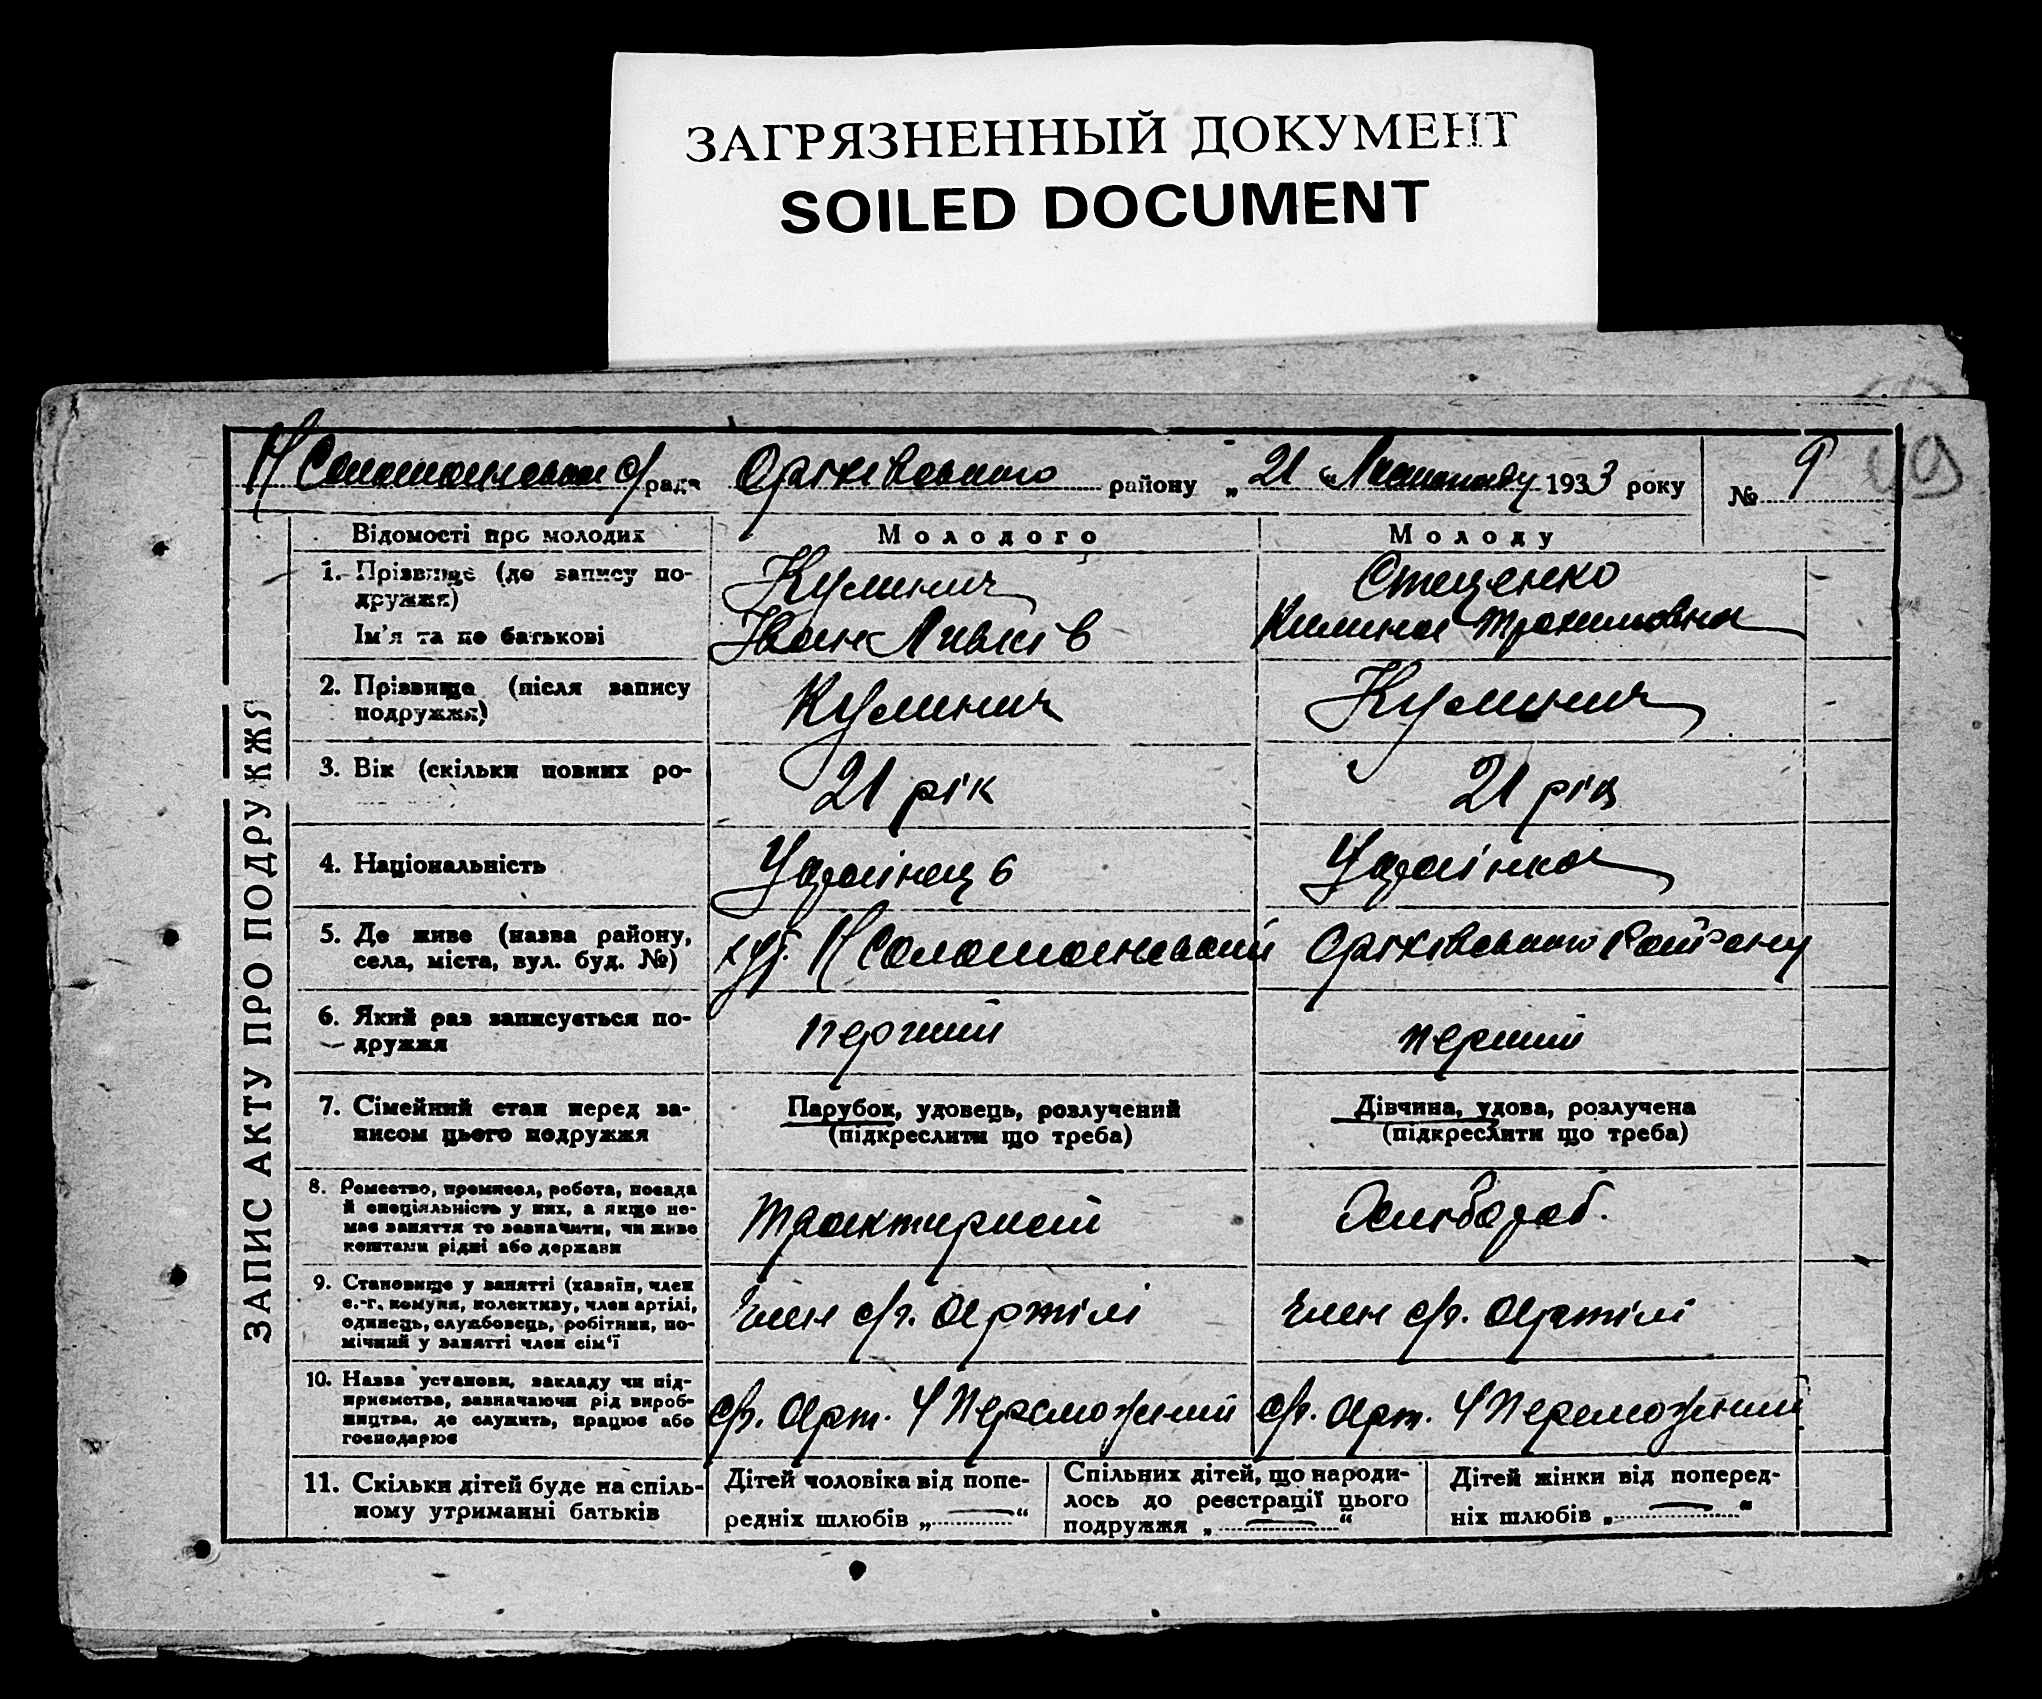 ЗАГРЯЗНЕННЫЙ ДОКУМЕНТ
SOILED DOCUMENT
с/рада Оріхівського району „ 21 “ Листопаду 1933 року № 9
49
ЗАПИС АКТУ ПРО ПОДРУЖЖЯ
Відомості про молодих Молодого Молоду
1. Прізвище (до запису по-
дружжя) Кулинич Стеценко
Ім'я та по батькові Іван Килина Трохимовна
2. Прізвище (після запису
подружжя) Кулинич Кулинич
3. Вік (скільки повних ро- 21 рік 21 рік
4. Національність Українець Українка
5. Де живе (назва району,
села, міста, вул. буд. №) хут. Оріхівського Району
6. Який раз записується по-
дружжя перший перший
7. Сімейний стан перед за-
писом цього подружжя
Парубок, удовець, розлучений
(підкреслити що треба)
Дівчина, удова, розлучена
(підкреслити що треба)
8. Ремество, промисел, робота, посада
й спеціяльність у них, а якщо не-
має заняття то зазначити, чи живе
коштами рідні або держави
Трактирист Хлібороб.
9. Становище у занятті (хазяїн, член
с.-г. комуни, колективу, член артілі,
одинець, службовець, робітник, по-
мічний у занятті член сім'ї
Член с/г. Артілі Член с/г. Артілі
10. Назва установи, закладу чи під-
приємства, зазначаючи рід вироб-
ництва, де служить, працює або
господарює
с/г. Арт. Ч Переможний с/г. Арт. Ч Переможний
11. Скільки дітей буде на спіль-
ному утриманні батьків
Дітей чоловіка від попе-
редніх шлюбів „ — “
Спільних дітей, що народи-
лось до реєстрації цього
подружжя „ — “
Дітей жінки від поперед-
ніх шлюбів „ — “